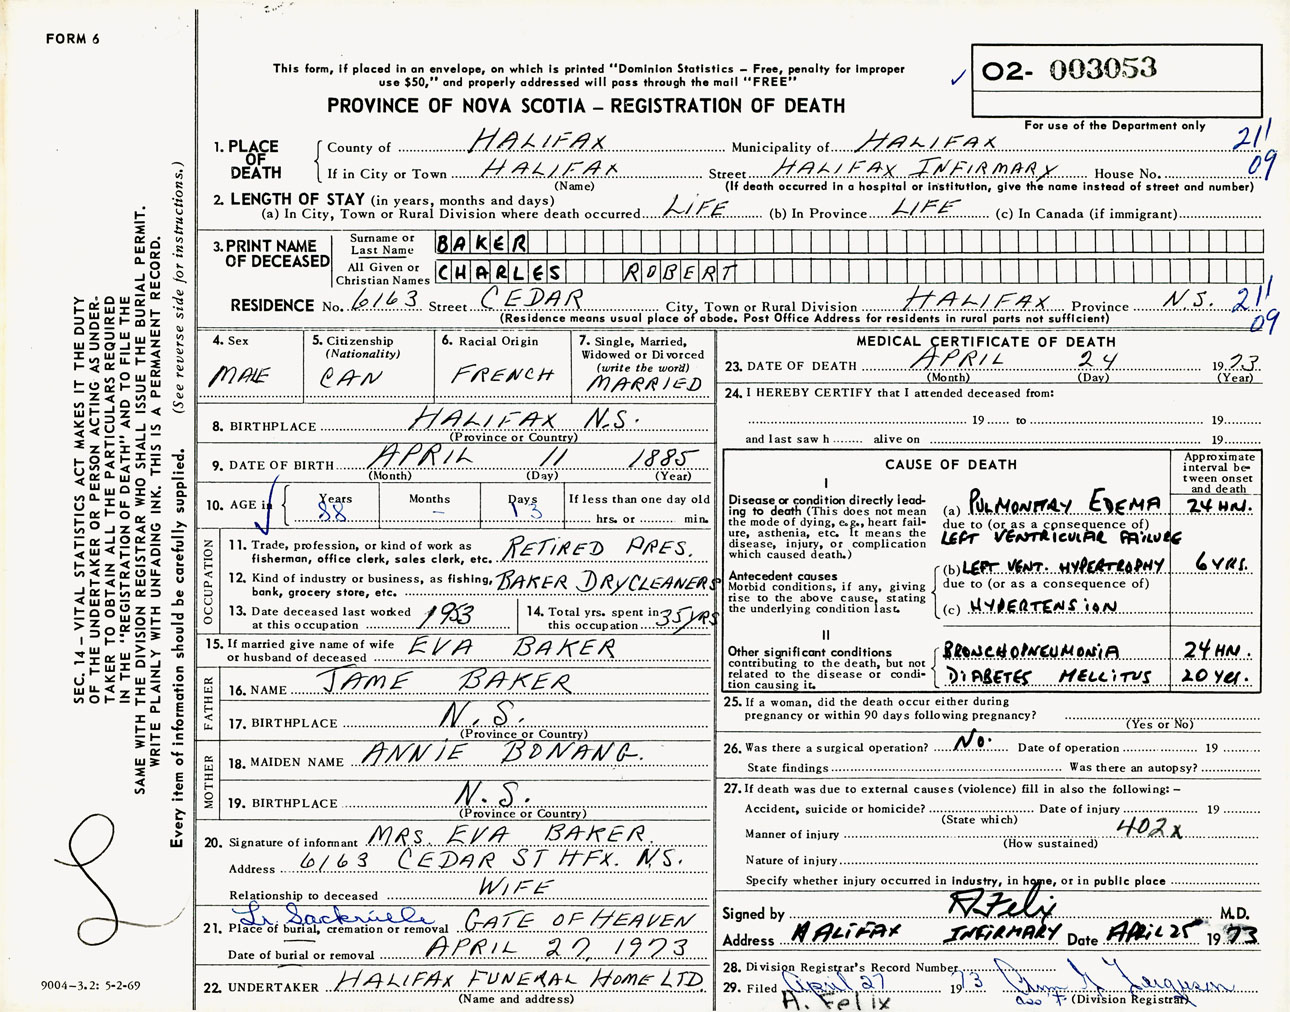 FORM 6
This form, if placed in an envelope, on which is printed "Dominion Statistics – Free, penalty for improper
use $50," and properly addressed will pass through the mail "FREE"
PROVINCE OF NOVA SCOTIA – REGISTRATION OF DEATH
02- 003053
For use of the Department only
1. PLACE OF DEATH
County of HALIFAX Municipality of HALIFAX 211
If in City or Town HALIFAX Street HALIFAX INFIRMARY House No. 09
(Name) (If death occurred in a hospital or institution, give the name instead of street and number)
2. LENGTH OF STAY (in years, months and days)
(a) In City, Town or Rural Division where death occurred LIFE (b) In Province LIFE (c) In Canada (if immigrant)
3. PRINT NAME OF DECEASED
Surname or Last Name BAKER
All Given or Christian Names CHARLES ROBERT
RESIDENCE No. 6163 Street CEDAR City, Town or Rural Division HALIFAX Province N.S. 211
(Residence means usual place of abode. Post Office Address for residents in rural parts not sufficient) 09
4. Sex MALE
5. Citizenship (Nationality) CAN
6. Racial Origin FRENCH
7. Single, Married, Widowed or Divorced (write the word) MARRIED
8. BIRTHPLACE HALIFAX N.S.
(Province or Country)
9. DATE OF BIRTH APRIL 11 1885
(Month) (Day) (Year)
10. AGE in Years 88 Months – Days 13 If less than one day old
hrs. or min.
OCCUPATION
11. Trade, profession, or kind of work as
fisherman, office clerk, sales clerk, etc. RETIRED PRES.
12. Kind of industry or business, as fishing,
bank, grocery store, etc. BAKER DRYCLEANERS
13. Date deceased last worked
at this occupation 1953
14. Total yrs. spent in
this occupation 35 YRS
15. If married give name of wife
or husband of deceased EVA BAKER
FATHER
16. NAME JAME BAKER
17. BIRTHPLACE N.S.
(Province or Country)
MOTHER
18. MAIDEN NAME ANNIE BONANG.
19. BIRTHPLACE N.S.
(Province or Country)
20. Signature of informant MRS. EVA BAKER
Address 6163 CEDAR ST HFX. N.S.
Relationship to deceased WIFE
Lr. Sackville
21. Place of burial, cremation or removal GATE OF HEAVEN
Date of burial or removal APRIL 27, 1973
22. UNDERTAKER HALIFAX FUNERAL HOME LTD.
(Name and address)
MEDICAL CERTIFICATE OF DEATH
23. DATE OF DEATH APRIL 24 1973
(Month) (Day) (Year)
24. I HEREBY CERTIFY that I attended deceased from:
19 to 19
and last saw h alive on 19
CAUSE OF DEATH
Approximate interval between onset and death
I
Disease or condition directly lead-
ing to death (This does not mean
the mode of dying, e.g., heart fail-
ure, asthenia, etc. It means the
disease, injury, or complication
which caused death.)
(a) PULMONARY EDEMA 24 HN.
due to (or as a consequence of)
LEFT VENTRICULAR FAILURE
Antecedent causes
Morbid conditions, if any, giving
rise to the above cause, stating
the underlying condition last.
(b) LEFT VENT. HYPERTROPHY 6 YRS.
due to (or as a consequence of)
(c) HYPERTENSION
II
Other significant conditions
contributing to the death, but not
related to the disease or condi-
tion causing it.
BRONCHOPNEUMONIA 24 HN.
DIABETES MELLITUS 20 YRS.
25. If a woman, did the death occur either during
pregnancy or within 90 days following pregnancy?
(Yes or No)
26. Was there a surgical operation? NO. Date of operation 19
State findings Was there an autopsy?
27. If death was due to external causes (violence) fill in also the following: –
Accident, suicide or homicide? Date of injury 19
(State which)
Manner of injury 402x
(How sustained)
Nature of injury
Specify whether injury occurred in industry, in home, or in public place
Signed by A Felix M.D.
Address HALIFAX INFIRMARY Date APRIL 25 1973
28. Division Registrar's Record Number
29. Filed April 27 1973 Ferguson
A. Felix (Division Registrar)
SEC. 14 – VITAL STATISTICS ACT MAKES IT THE DUTY
OF THE UNDERTAKER OR PERSON ACTING AS UNDER-
TAKER TO OBTAIN ALL THE PARTICULARS REQUIRED
IN THE "REGISTRATION OF DEATH" AND TO FILE THE
SAME WITH THE DIVISION REGISTRAR WHO SHALL ISSUE THE BURIAL PERMIT.
WRITE PLAINLY WITH UNFADING INK. THIS IS A PERMANENT RECORD.
Every item of information should be carefully supplied. (See reverse side for instructions.)
9004-3.2: 5-2-69